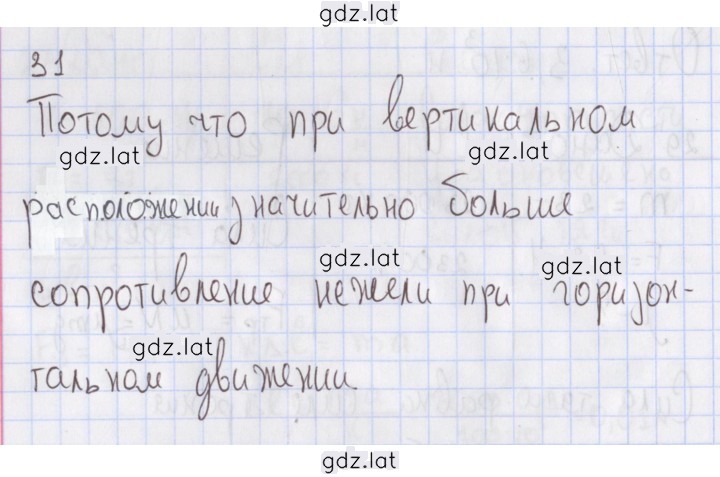 gdz.lat
31
Потому что при вертикальном
gdz.lat
gdz.lat
расположении значительно больше
gdz.lat
gdz.lat
сопротивление нежели при горизон-
gdz.lat
тальном движении
gdz.lat